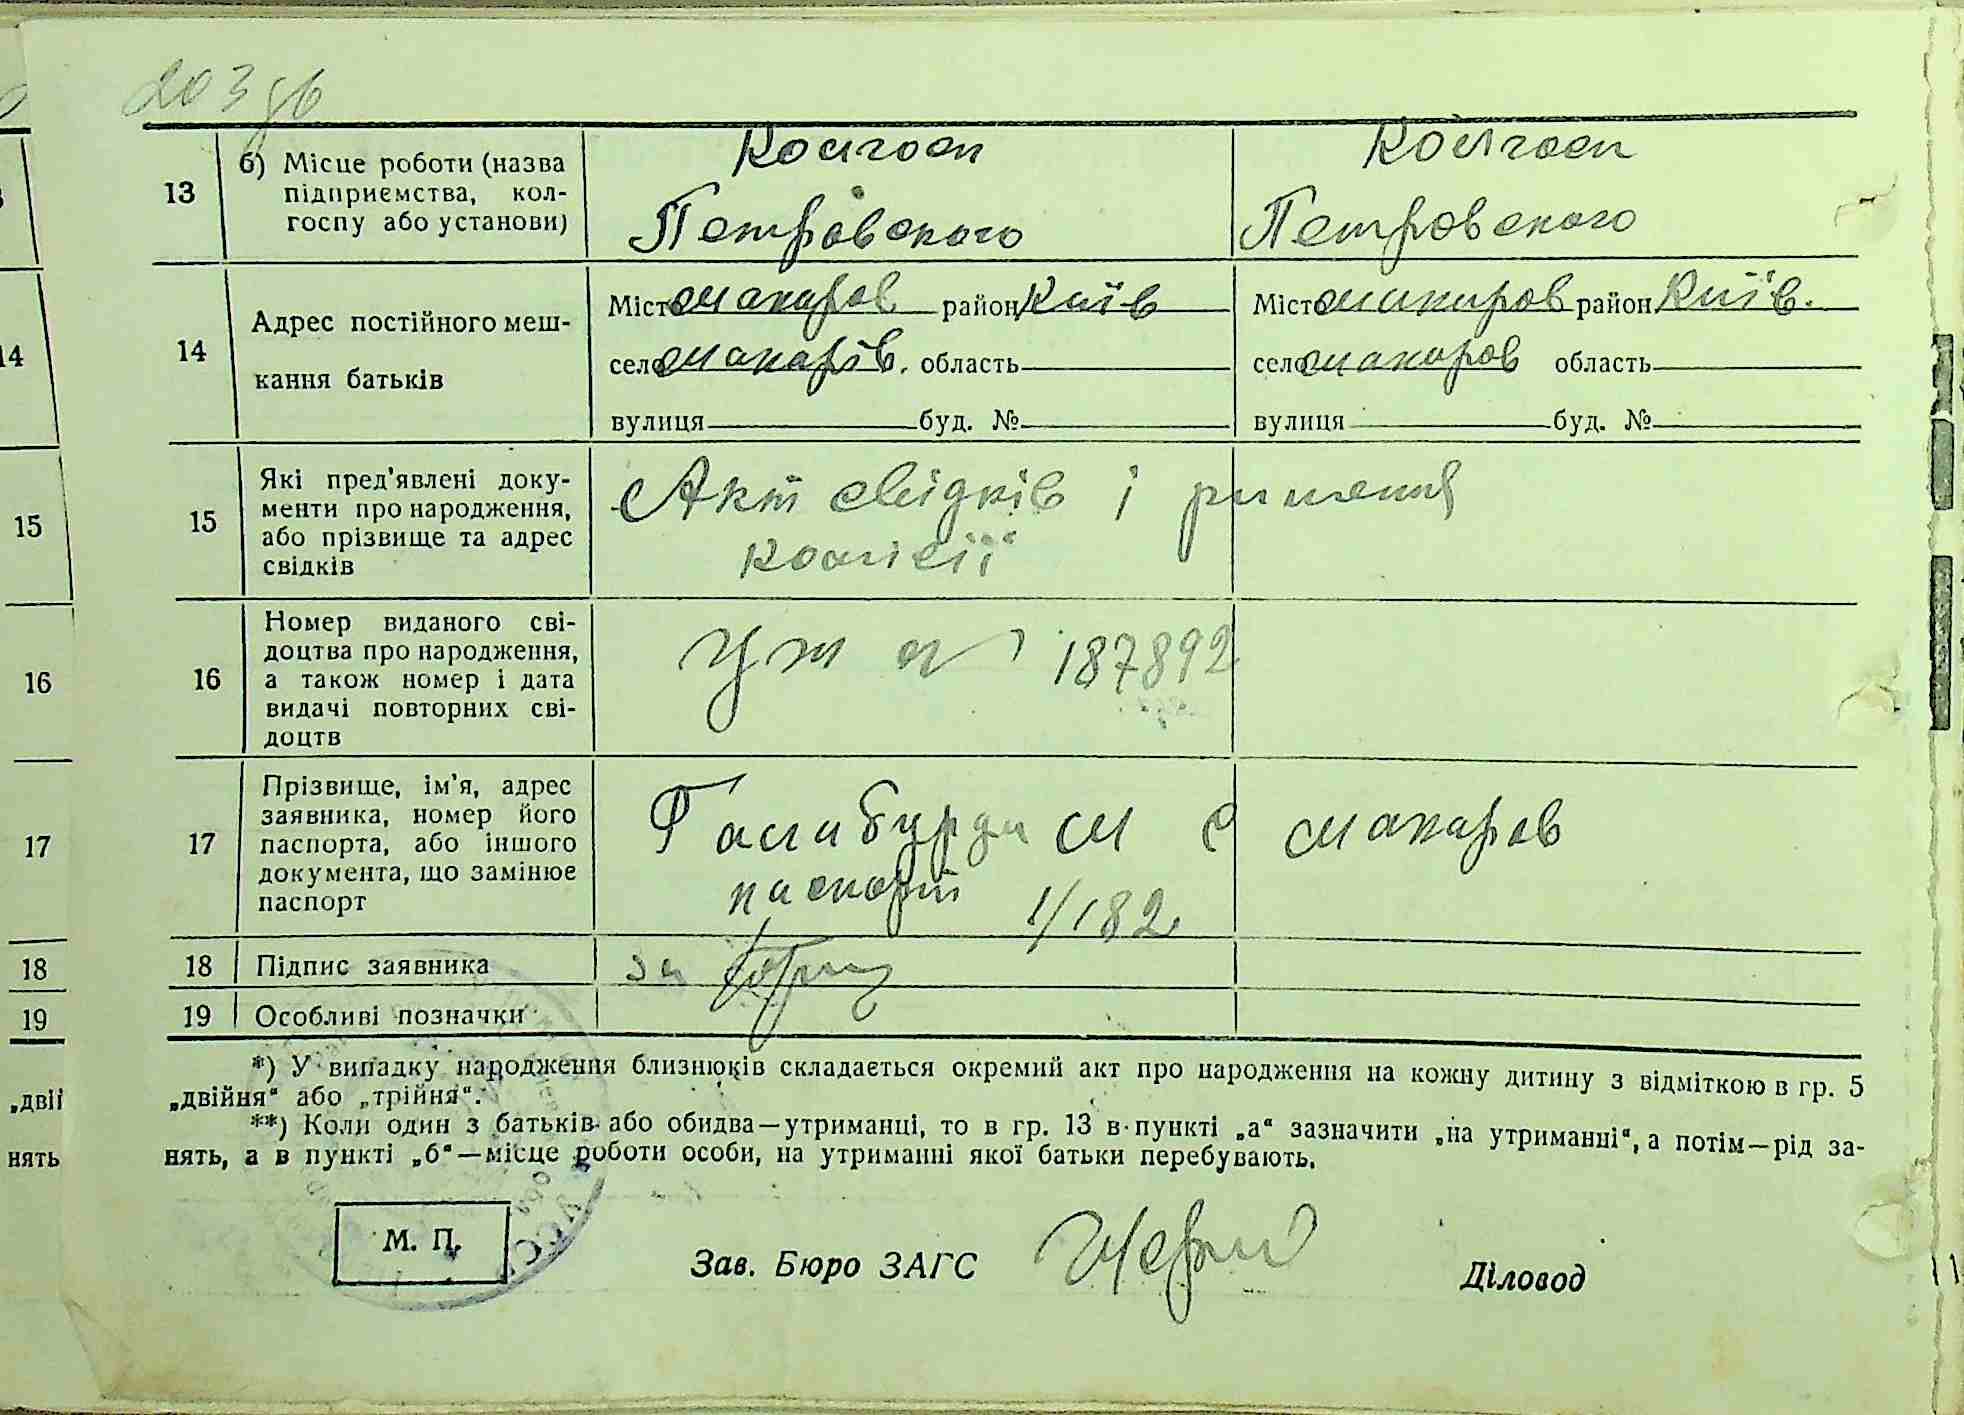 203 зв
13 б) Місце роботи (назва Колгосп Колгосп
підприємства, кол-
госпу або установи) Петровского Петровского
14 Адрес постійного меш-
кання батьків
Місто Макаров район Київ Місто Макаров район Київ.
село Макарів. область село Макаров область
вулиця буд. № вулиця буд. №
15 15 Які пред'явлені доку-
менти про народження,
або прізвище та адрес
свідків
Акт свідків і ришення
комісії
16 16 Номер виданого сві-
доцтва про народження,
а також номер і дата
видачі повторних сві-
доцтв
187892
17 17 Прізвище, ім'я, адрес
заявника, номер його
паспорта, або іншого
документа, що замінює
паспорт
Галабурда М С Макаров
паспорт 1/182
18 18 Підпис заявника за
19 19 Особливі позначки
*) У випадку народження близнюків складається окремий акт про народження на кожну дитину з відміткою в гр. 5
„двійня“ або „трійня“.
**) Коли один з батьків або обидва—утриманці, то в гр. 13 в пункті „а“ зазначити „на утриманні“, а потім—рід за-
нять, а в пункті „б“—місце роботи особи, на утриманні якої батьки перебувають.
М. П.
Зав. Бюро ЗАГС Діловод
УССР